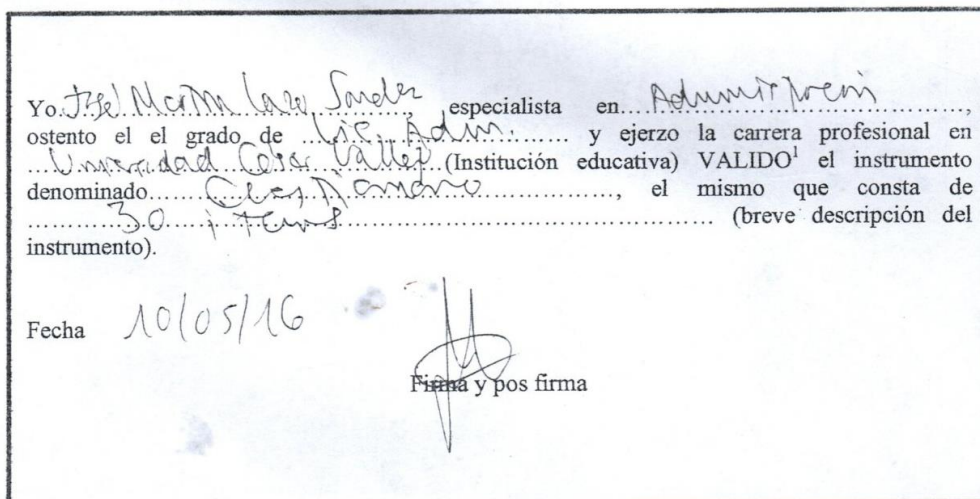 Yo José Martín Lazo Sánchez especialista en Administración,
ostento el el grado de Lic. Adm. y ejerzo la carrera profesional en
Universidad Cesar Vallejo (Institución educativa) VALIDO¹ el instrumento
denominado Cuestionario, el mismo que consta de
30 items (breve descripción del
instrumento).
Fecha 10/05/16
Firma y pos firma